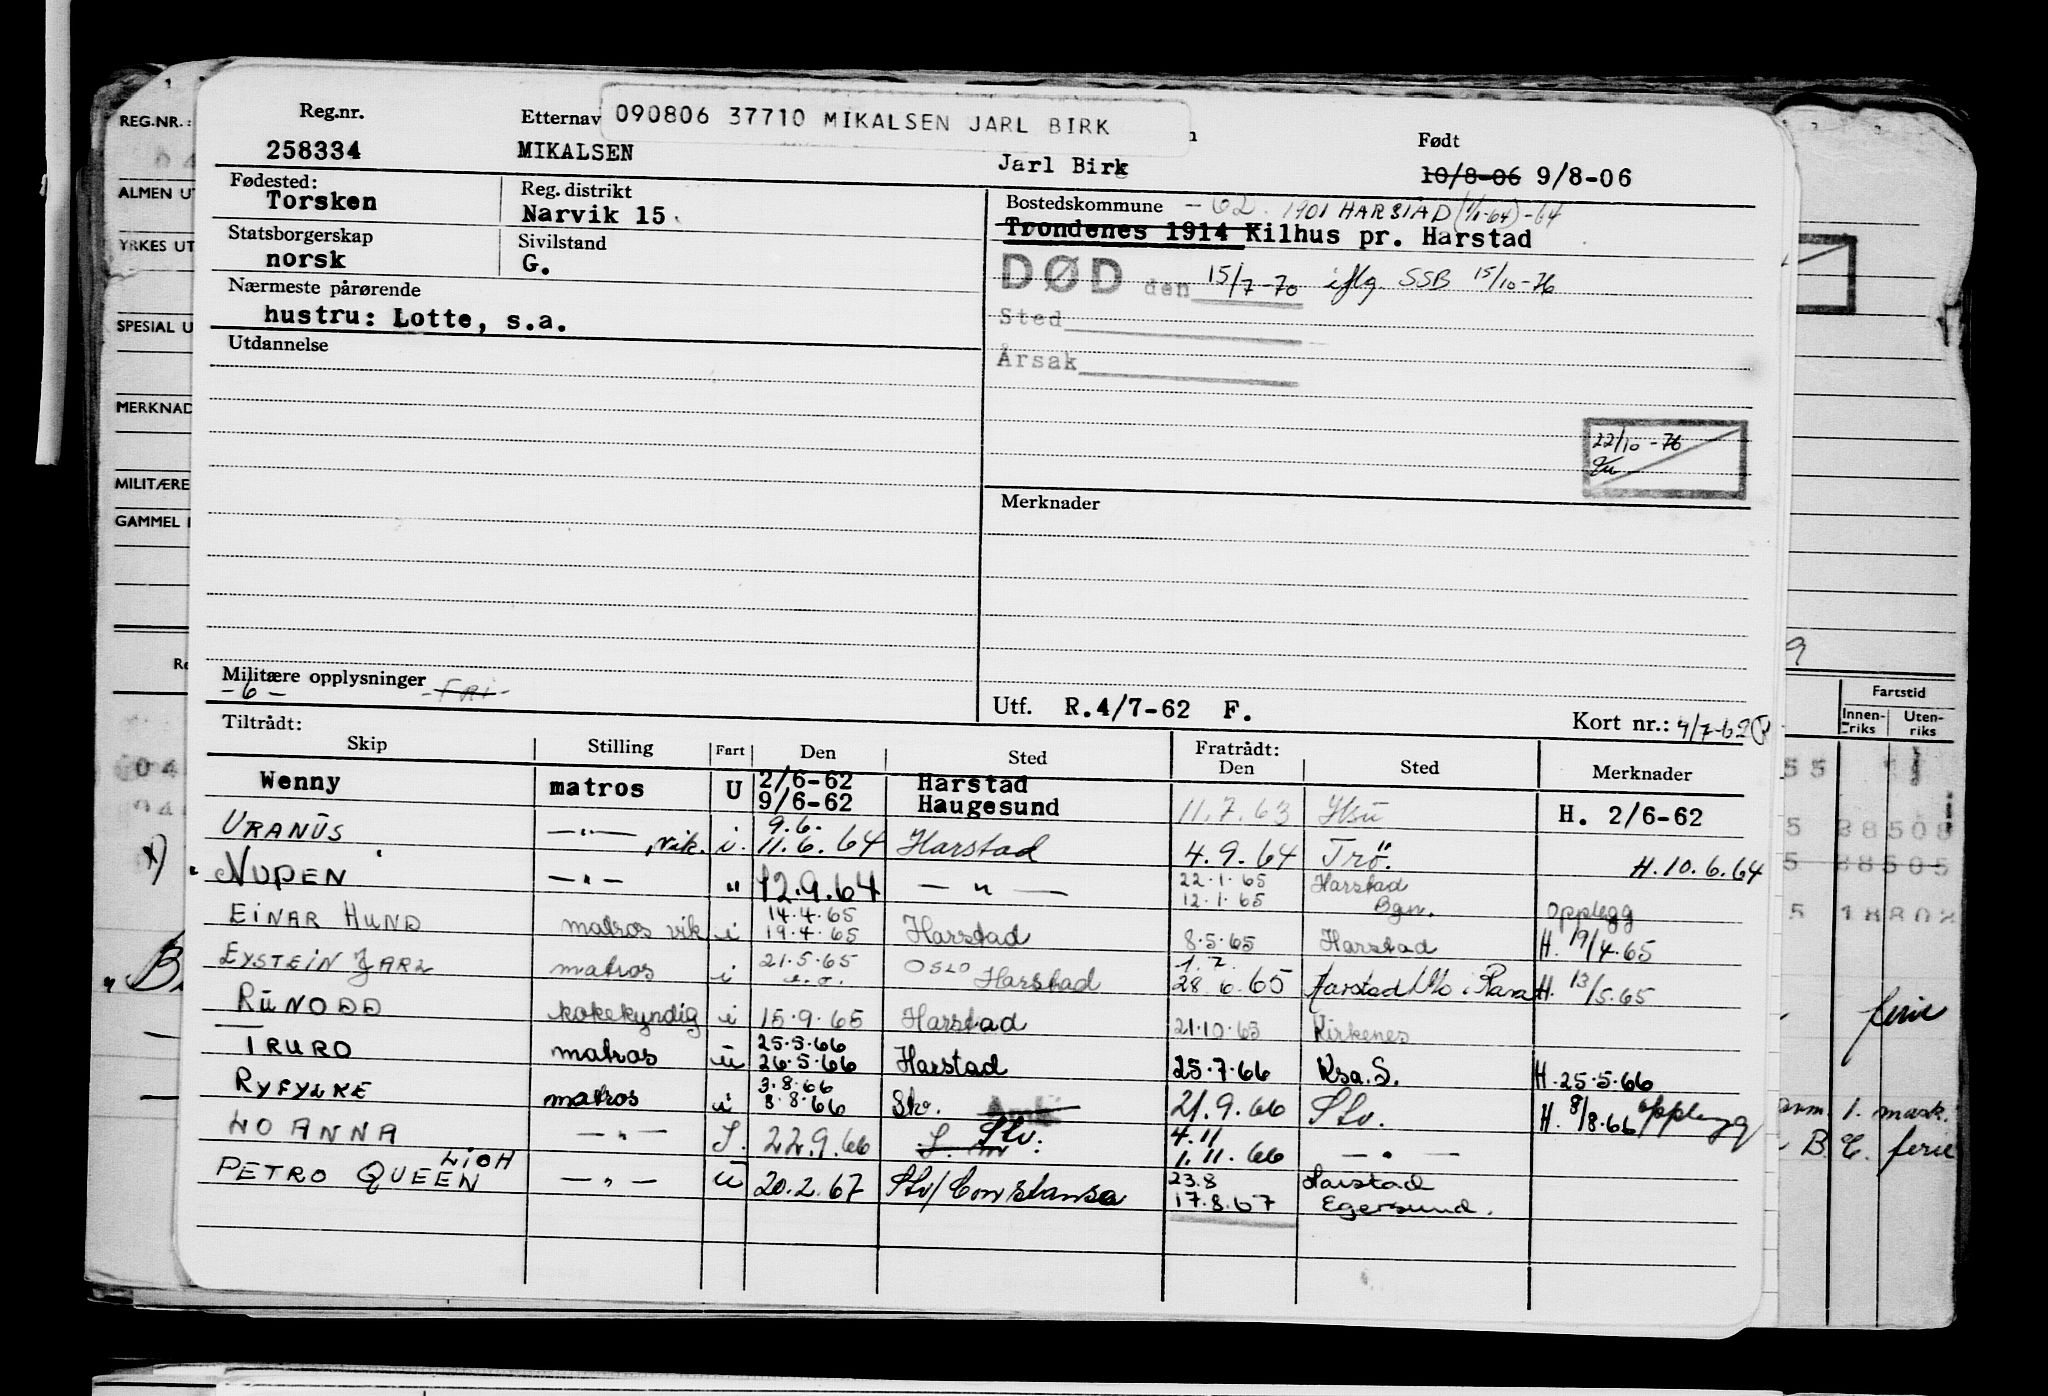 REG.NR.:
ALMEN UT
YRKES UT
SPESIAL U
MERKNAD
MILITÆRE
GAMMEL
Reg.nr. Etternav 090806 37710 MIKALSEN JARL BIRK Født
258334 MIKALSEN Jarl Birk 10/8-06 9/8-06
Fødested: Torsken
Reg. distrikt Narvik 15.
Bostedskommune -62. 1901 HARSTAD (1/1-64) -64
Trondenes 1914 Kilhus pr. Harstad
Statsborgerskap norsk
Sivilstand G.
DØD den 15/7-70 iflg SSB 15/10-76
Nærmeste pårørende
hustru: Lotte, s.a.
Sted
Årsak
Utdannelse
22/10-76
Merknader
Militære opplysninger
-6- -FRI-
Utf. R.4/7-62 F. Kort nr.: 4/7-62
Tiltrådt: Fratrådt:
Skip Stilling Fart Den Sted Den Sted Merknader
Wenny matros U 2/6-62 Harstad
9/6-62 Haugesund 11.7.63 H. 2/6-62
URANUS —"— vik. i. 9.6. 11.6.64 Harstad 4.9.64 Trö. H.10.6.64
NUPEN —"— " 12.9.64 —"— 22.1.65 Harstad
12.1.65 Bgn. Opplegg
EINAR HUND matros vik i 14.4.65 19.4.65 Harstad 8.5.65 Harstad H. 19/4.65
EYSTEIN JARL matros i 21.5.65 OSLO Harstad 1.7. 28.6.65 Harstad Mo i Rana H. 13/5.65
RUNODD kokekyndig i 15.9.65 Harstad 21.10.65 Kirkenes
TRURO matros u 25.5.66 26.5.66 Harstad 25.7.66 Ksa.S. H.25.5.66
RYFYLKE matros i 3.8.66 8.8.66 Slv. 21.9.66 Slv. H. 8/8.66 opplegg
LO ANNA —"— 22.9.66 Slv. 4.11 1.11.66 —"—
PETRO QUEEN LIOH —"— u 20.2.67 Slv/Constansa 23.8 Harstad
17.8.67 Egersund.
Fartstid
Innenriks Utenriks
ferie
1. mask.
B. E. ferie